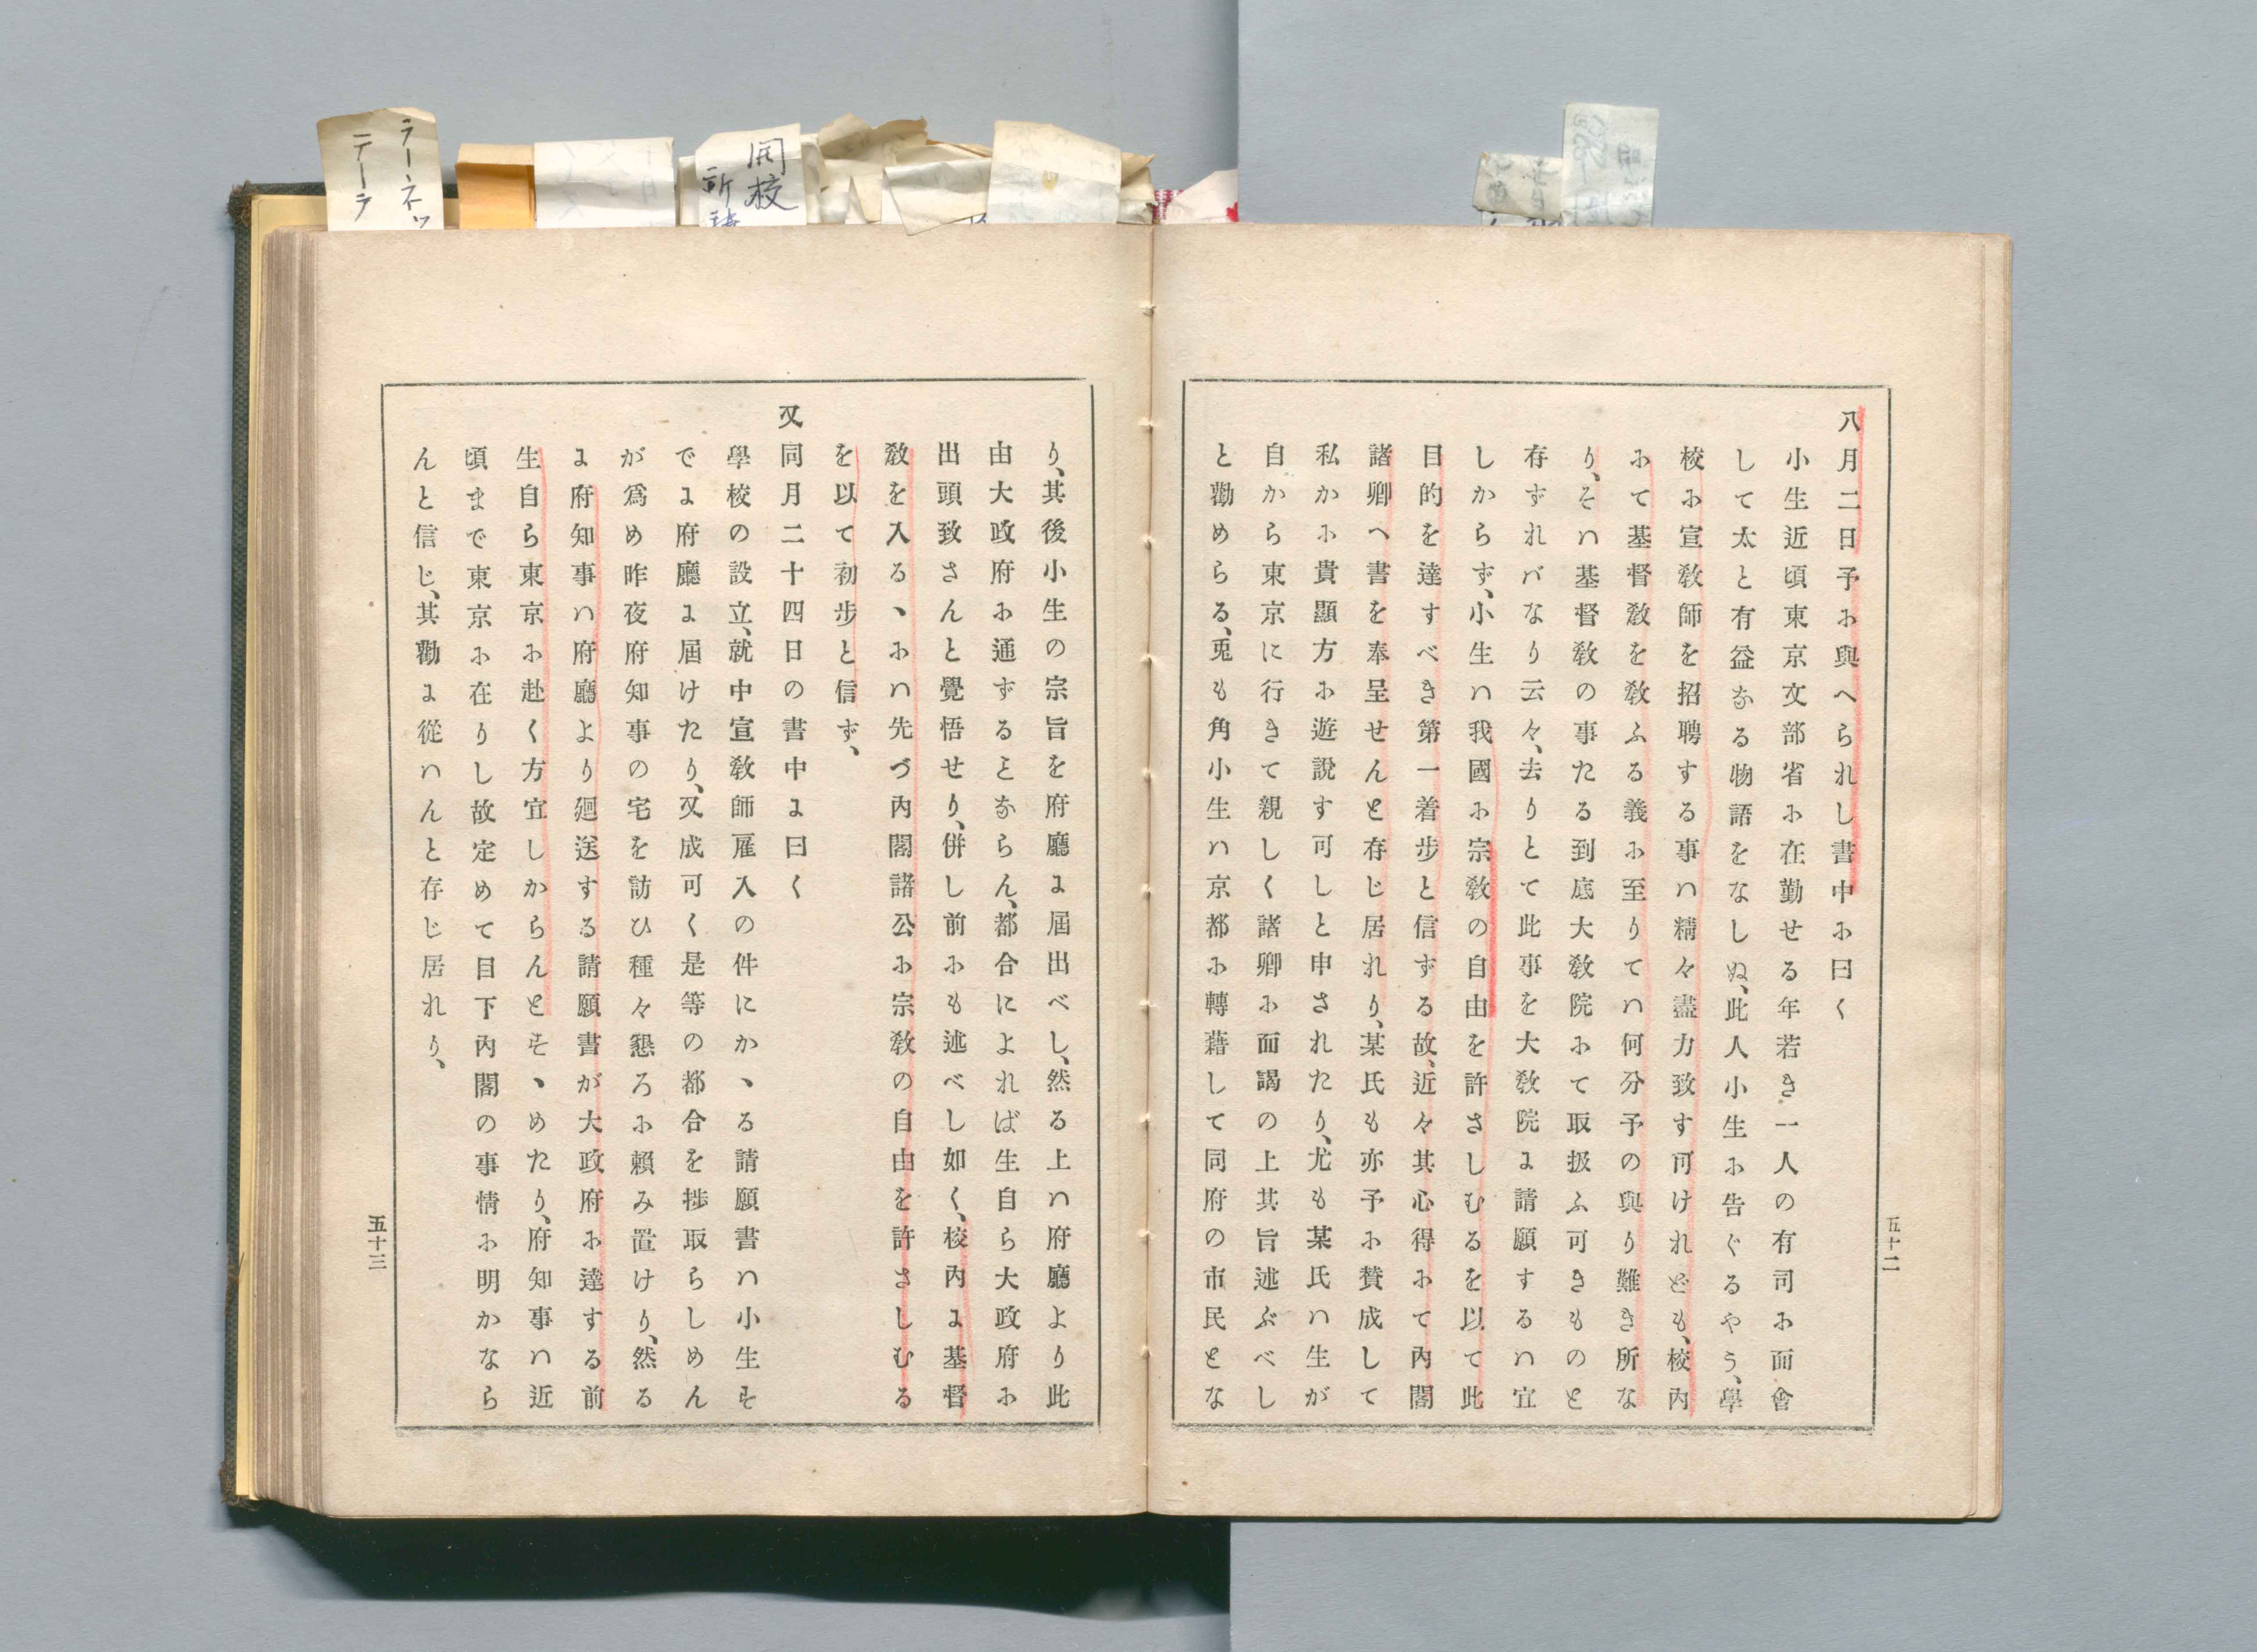 八月二日予に與へられし書中に曰く
小生近頃東京文部省に在勤せる年若き一人の有司に面會
して太と有益なる物語をなしぬ、此人小生に告ぐるやう、學
校に宣敎師を招聘する事ハ精々盡力致す可けれども、校内
にて基督敎を敎ふる義に至りてハ何分予の與り難き所な
り、そハ基督敎の事たる到底大敎院にて取扱ふ可きものと
存ずれバなり云々、去りとて此事を大敎院に請願するハ宜
しからず、小生ハ我國に宗敎の自由を許さしむるを以て此
目的を達すべき第一着歩と信ずる故、近々其心得にて内閣
諸卿へ書を奉呈せんと存じ居れり、某氏も亦予に賛成して
私かに貴顯方に遊說す可しと申されたり、尤も某氏ハ生が
自から東京に行きて親しく諸卿に面謁の上其旨述ぶべし
と勸めらる、兎も角小生ハ京都に轉藉して同府の市民とな
五十二
り、其後小生の宗旨を府廳に屆出べし、然る上ハ府廳より此
由大政府に通ずるとならん、都合によれば生自ら大政府に
出頭致さんと覺悟せり、併し前にも述べし如く、校内に基督
敎を入るゝにハ先づ内閣諸公に宗敎の自由を許さしむる
を以て初步と信ず、
又同月二十四日の書中に曰く
學校の設立、就中宣敎師雇入の件にかゝる請願書ハ小生す
でに府廳に屆けたり、又成可く是等の都合を捗取らしめん
が爲め昨夜府知事の宅を訪ひ種々懇ろに賴み置けり、然る
に府知事ハ府廳より廻送する請願書が大政府に達する前
生自ら東京に赴く方宜しからんとすゝめたり、府知事ハ近
頃まで東京に在りし故定めて目下内閣の事情に明かなら
んと信じ、其勸に從ハんと存じ居れり、
五十三
ラーネッ
テーラ
開校